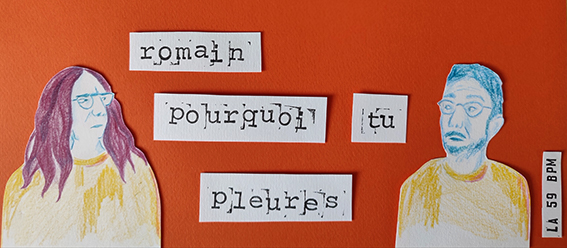 romain
pourquoi tu
pleures
LA 59 BPM